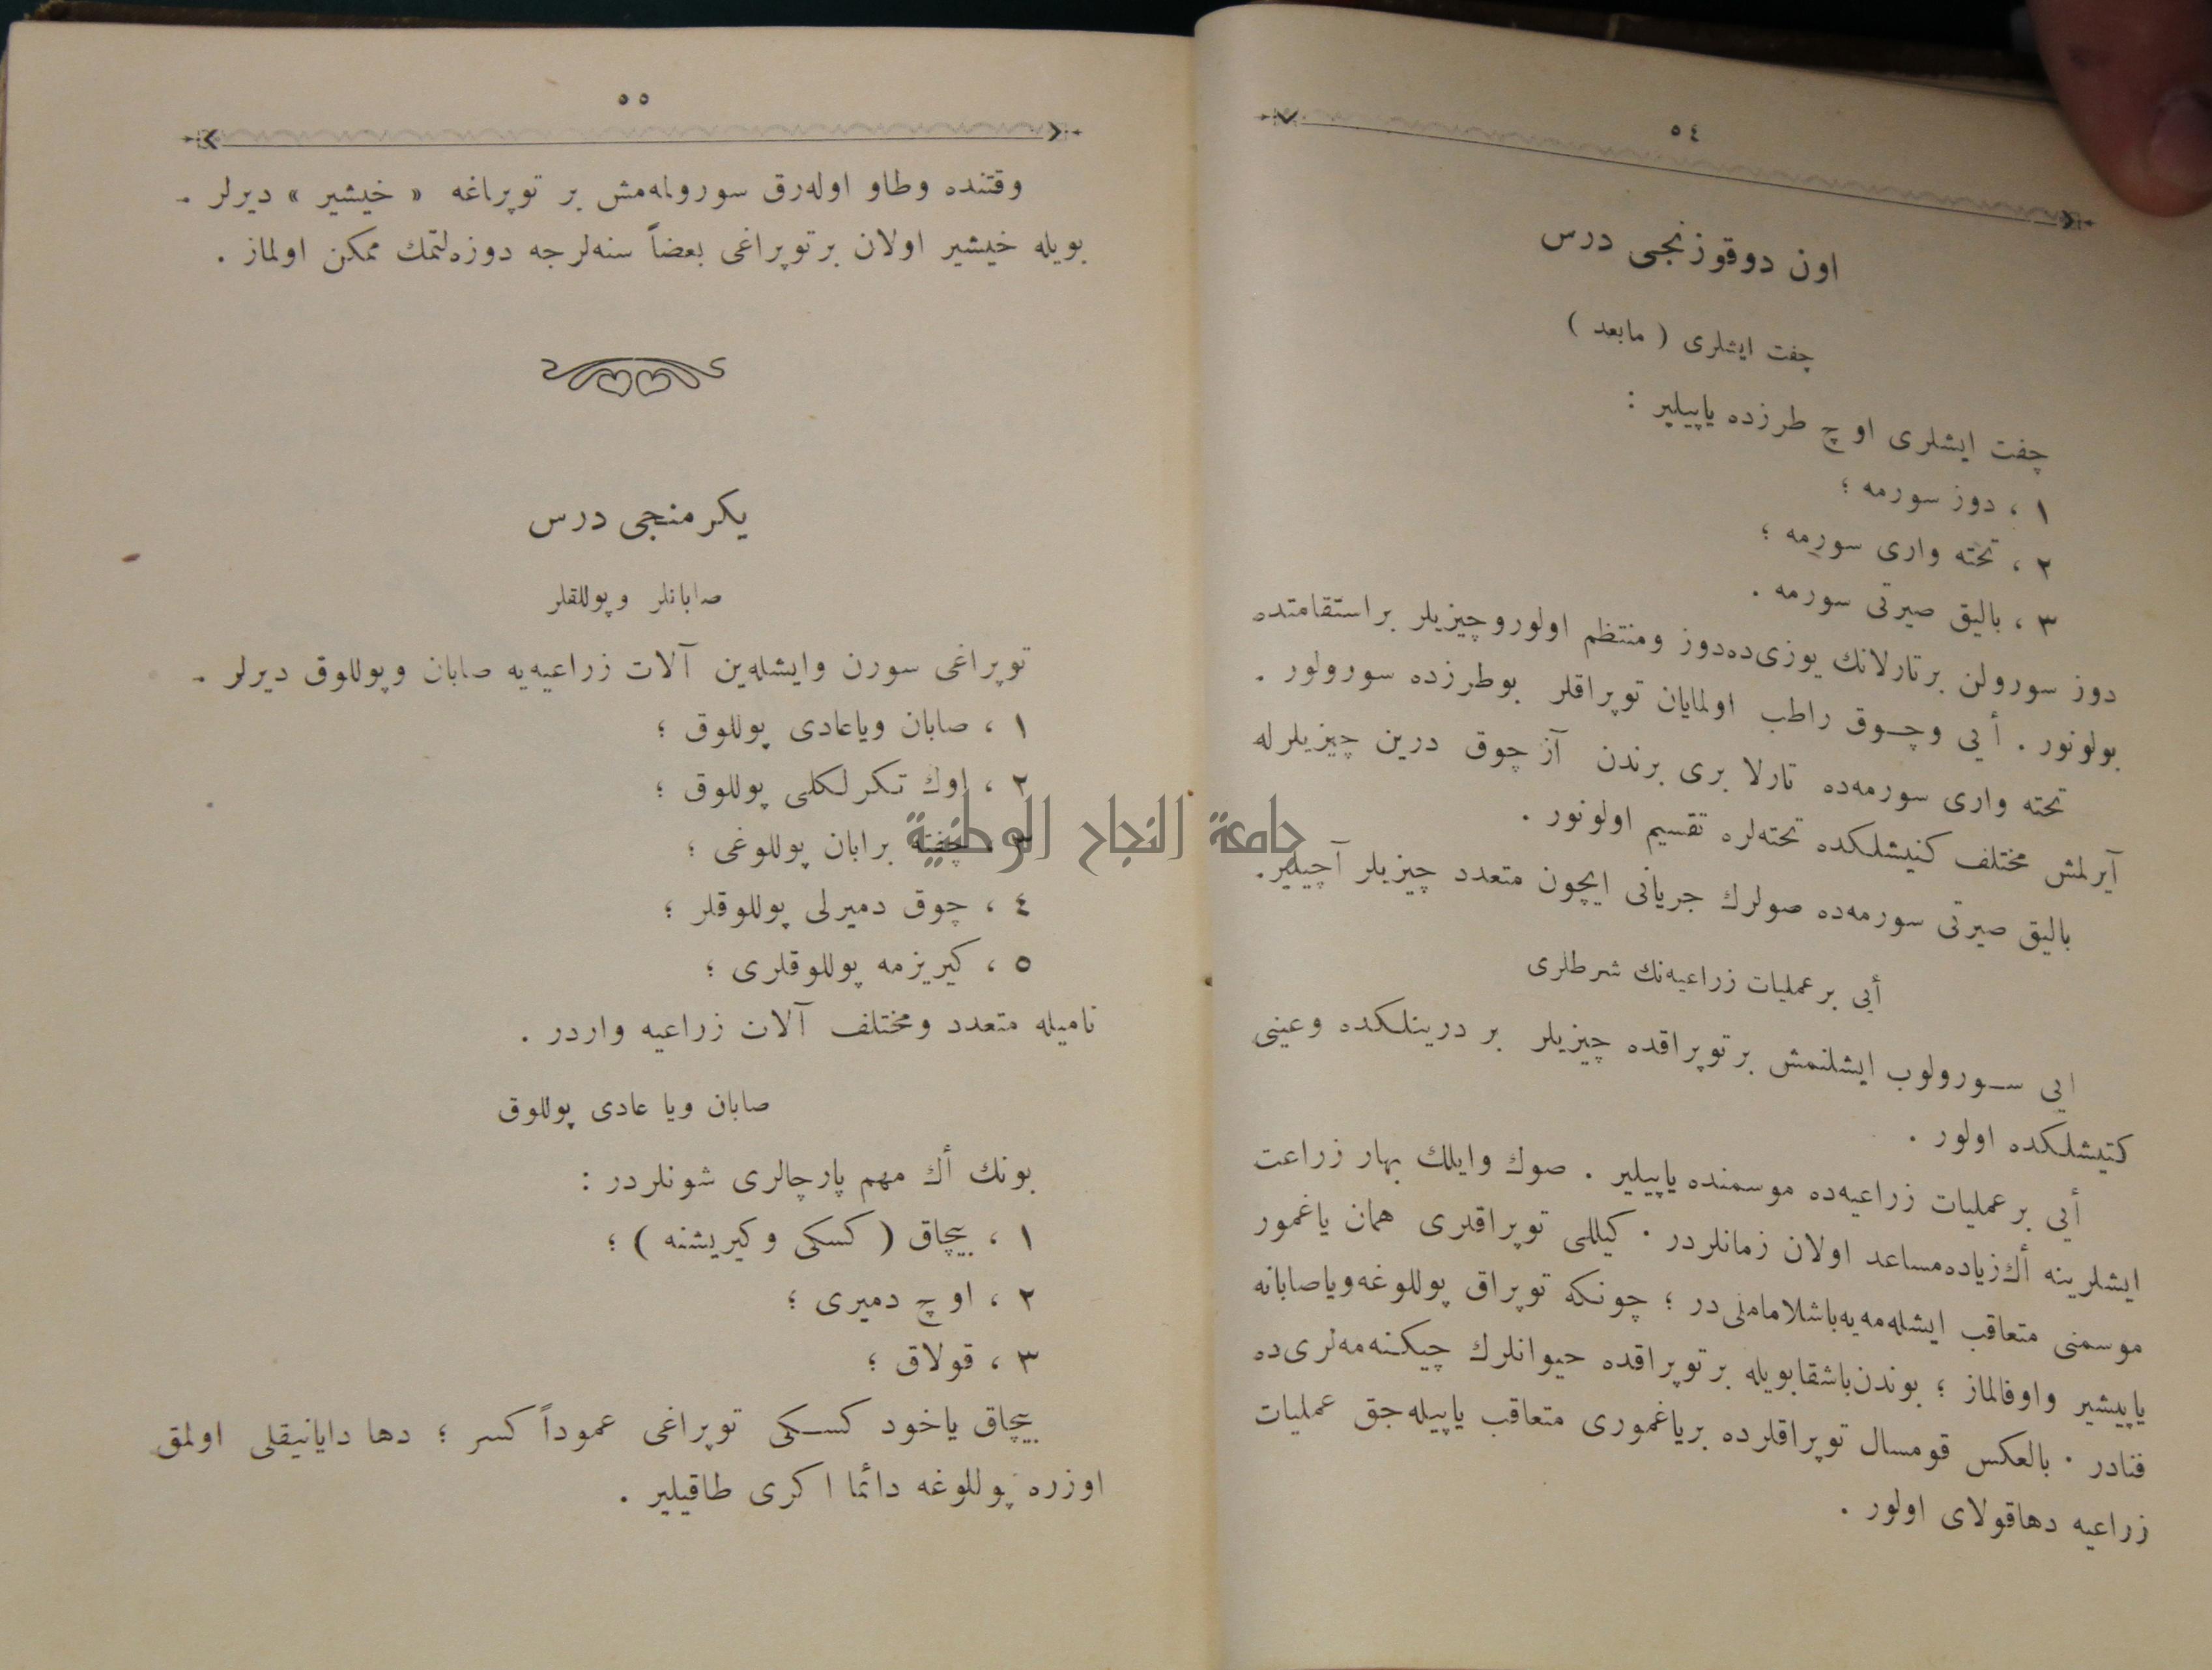 ٥٤
اون دوقوزنجی درس
چفت ایشلری ( مابعد )
چفت ایشلری اوچ طرزده یاپیلیر :
١ ، دوز سورمه ؛
٢ ، تخته واری سورمه ؛
٣ ، بالیق صیرتی سورمه .
دوز سورولن برتارلانك یوزی‌ده‌دوز ومنتظم اولوروچیزیلر براستقامتده
بولونور . أیی وچـوق راطب اولمایان توپراقلر بوطرزده سورولور .
تخته واری سورمه‌ده تارلا بری برندن آز چوق درین چیزیلرله
آیرلمش مختلف کنیشلکده تخته‌لره تقسیم اولونور .
بالیق صیرتی سورمه‌ده صولرك جریانی ایچون متعدد چیزیلر آچیلیر.
أیی برعملیات زراعیه‌نك شرطلری
ایی سـورولوب ایشلنمش برتوپراقده چیزیلر بر درینلکده وعینی
کتیشلکده اولور .
أیی برعملیات زراعیه‌ده موسمنده یاپیلیر . صوك وایلك بهار زراعت
ایشلرینه أك‌زیاده‌مساعد اولان زمانلردر . کیللی توپراقلری همان یاغمور
موسمنی متعاقب ایشله‌مه‌یه‌باشلاماملی‌در ؛ چونکه توپراق پوللوغه‌ویاصابانه
یاپیشیر واوفالماز ؛ بوندن‌باشقابویله برتوپراقده حیوانلرك چیکنه‌مه‌لری‌ده
فنادر . بالعکس قومسال توپراقلرده بریاغموری متعاقب یاپیله‌جق عملیات
زراعیه دهاقولای اولور .
٥٥
وقتنده وطاو اوله‌رق سورولمه‌مش بر توپراغه « خیشیر » دیرلر .
بویله خیشیر اولان برتوپراغی بعضاً سنه‌لرجه دوزه‌لتمك ممکن اولماز .
یکرمنجی درس
صابانلر وپوللقلر
توپراغی سورن وایشله‌ین آلات زراعیه‌یه صابان وپوللوق دیرلر .
١ ، صابان ویاعادی پوللوق ؛
٢ ، اوك تکرلکلی پوللوق ؛
٣ ، چفته برابان پوللوغی ؛
٤ ، چوق دمیرلی پوللوقلر ؛
٥ ، کیریزمه پوللوقلری ؛
نامیله متعدد ومختلف آلات زراعیه واردر .
صابان ویا عادی پوللوق
بونك أك مهم پارچالری شونلردر :
١ ، بیچاق ( کسکی وکیریشنه ) ؛
٢ ، اوچ دمیری ؛
٣ ، قولاق ؛
بیچاق یاخود کسـکی توپراغی عموداً کسر ؛ دها دایانیقلی اولمق
اوزره پوللوغه دائما اکری طاقیلیر .
جامعة النجاح الوطنية